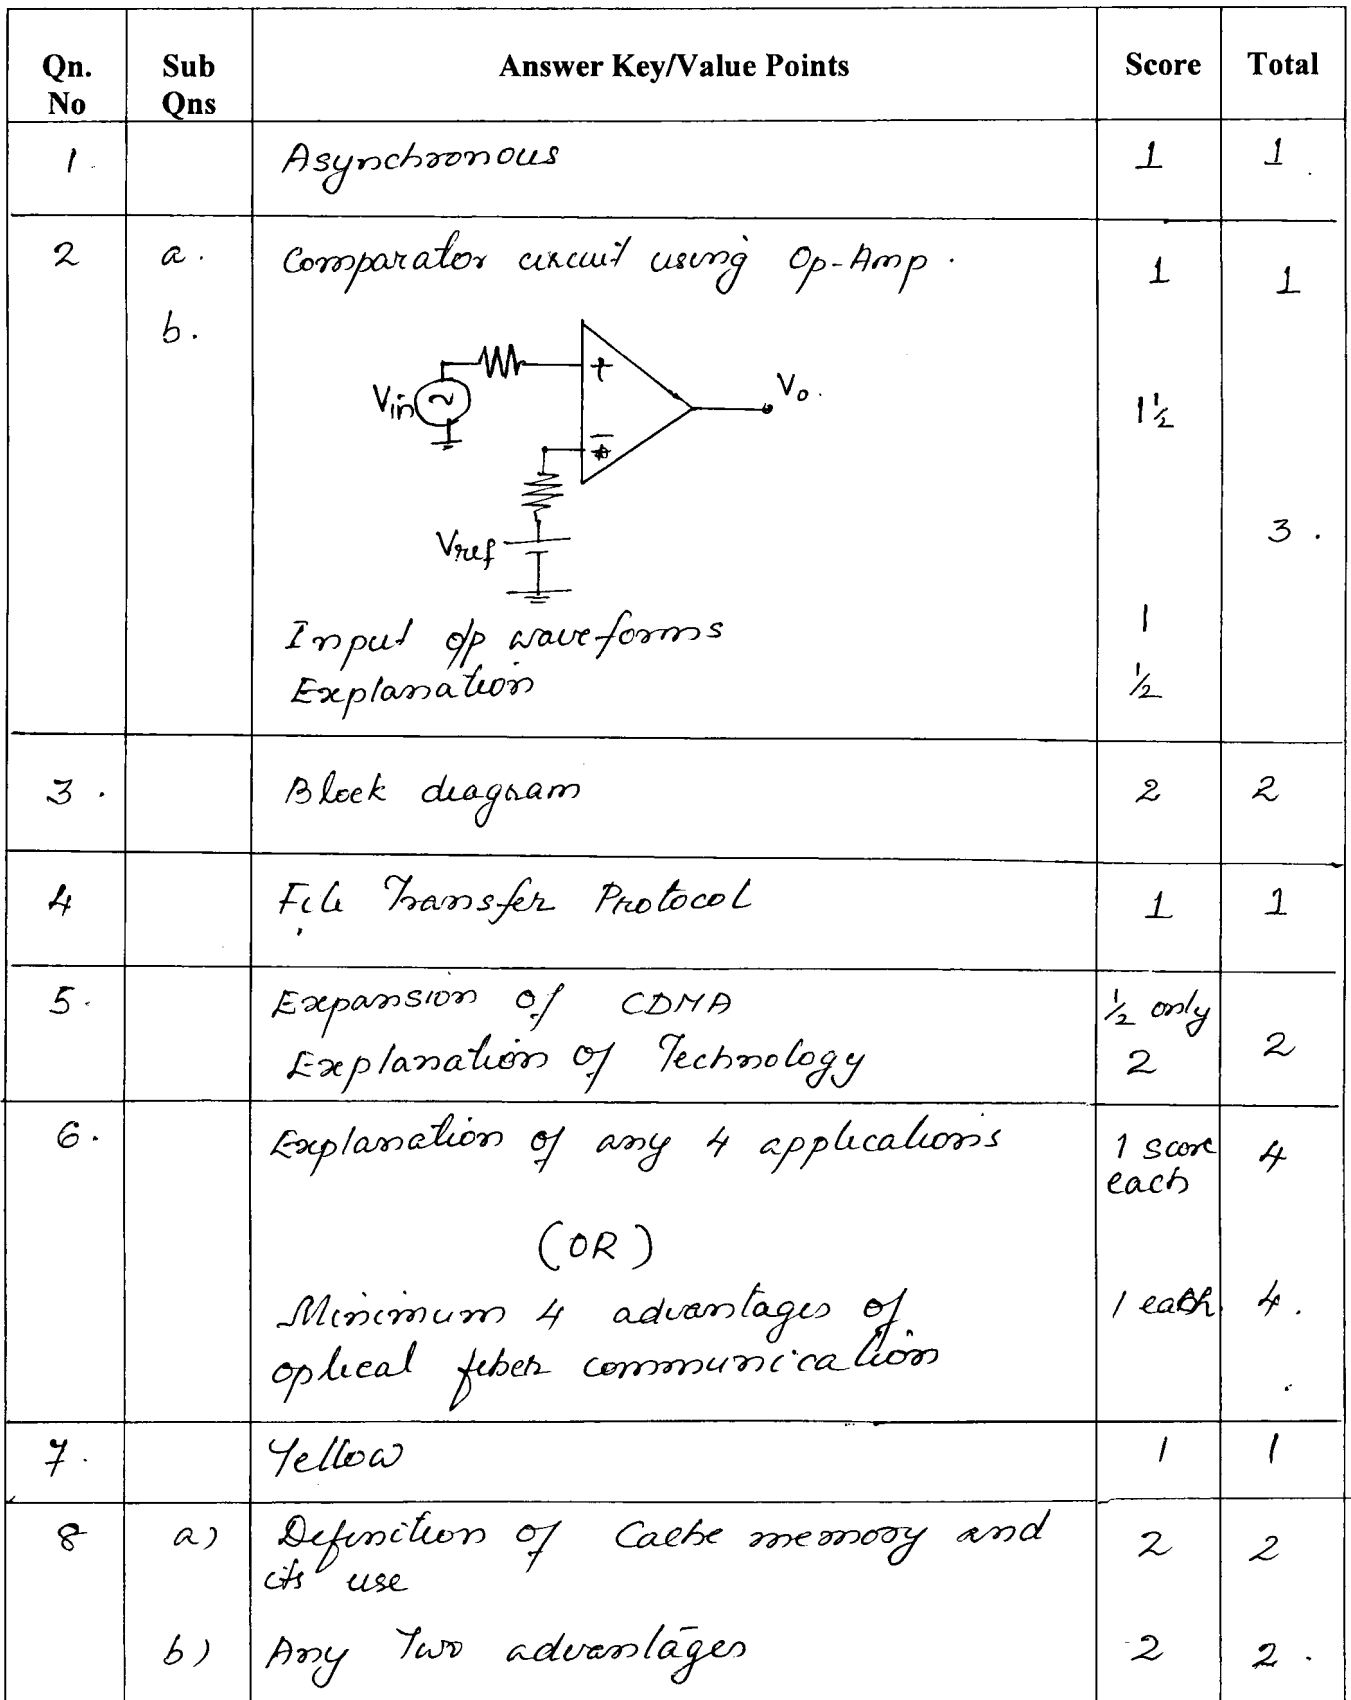 Qn. No Sub Qns Answer Key/Value Points Score Total
1. Asynchronous 1 1
2 a. Comparator circuit using Op-Amp. 1 1
b.
+
Vin ~ Vo.
1½
-
Vref 3.
Input o/p waveforms 1
Explanation ½
3. Block diagram 2 2
4 File Transfer Protocol 1 1
5. Expansion of CDMA ½ only
Explanation of Technology 2 2
6. Explanation of any 4 applications 1 score each 4
(OR)
Minimum 4 advantages of 1 each 4.
optical fiber communication
7. Yellow 1 1
8 a) Definition of Cache memory and 2 2
its use
b) Any Two advantages 2 2.